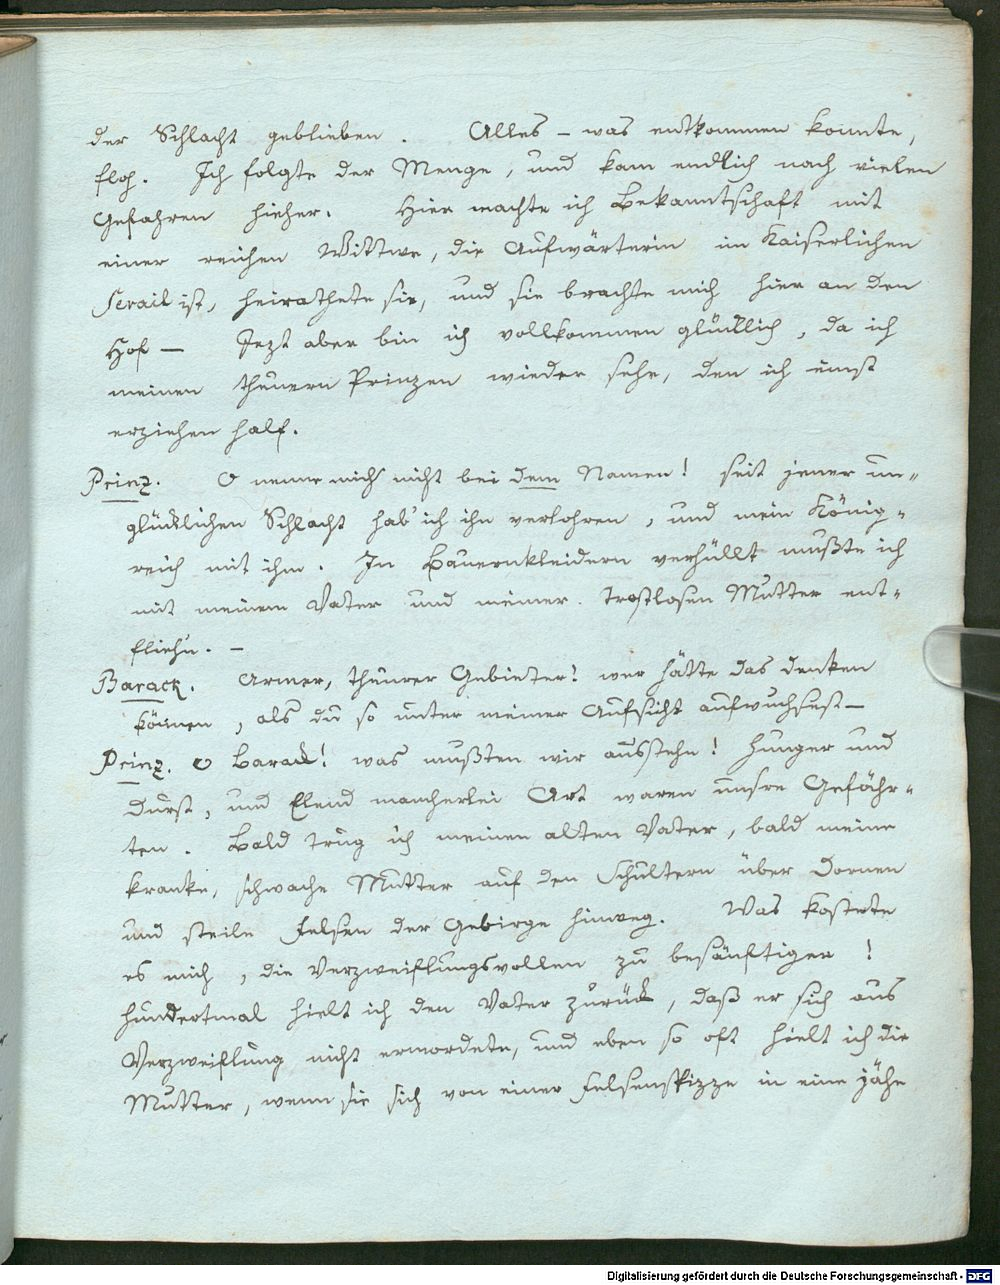 der Schlacht geblieben. Alles – was entkommen konnte,
floh. Ich folgte der Menge, und kam endlich nach vielen
Gefahren hieher. Hier machte ich Bekanntschaft mit
einer reichen Wittwe, die Aufwärterin im Kaiserlichen
Serail ist, heirathete sie, und sie brachte mich hier an den
Hof — Jezt aber bin ich vollkommen glücklich, da ich
meinen theuern Prinzen wieder sehe, den ich einst
erziehen half.
Prinz. O nenne mich nicht bei dem Namen! seit jener un-
glücklichen Schlacht hab' ich ihn verlohren, und mein König-
reich mit ihm. In Bauernkleidern verhüllt mußte ich
mit meinem Vater und meiner trostlosen Mutter ent-
fliehn. –
Barack. Armer, theurer Gebieter! wer hätte das denken
können, als du so unter meiner Aufsicht aufwuchsest –
Prinz. O Barack! was mußten wir ausstehn! Hunger und
Durst, und Elend mancherlei Art waren unsre Gefähr-
ten. Bald trug ich meinen alten Vater, bald meine
kranke, schwache Mutter auf den Schultern über Dornen
und steile Felsen der Gebirge hinweg. Was kostete
es mich, die Verzweiflungsvollen zu besänftigen!
hundertmal hielt ich den Vater zurück, daß er sich aus
Verzweiflung nicht ermordete, und eben so oft hielt ich die
Mutter, wenn sie sich von einer Felsenspizze in eine jähe
Digitalisierung gefördert durch die Deutsche Forschungsgemeinschaft - DFG